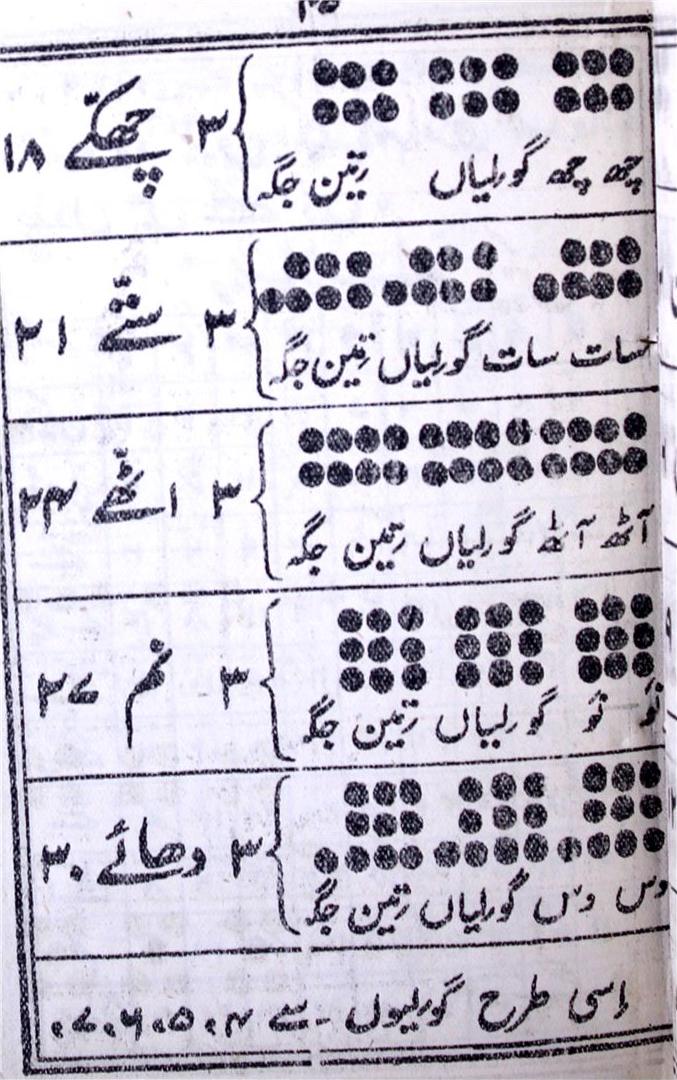 ۳ چھکّے ۱۸
چھ چھ گولیاں تین جگہ
۳ ستّے ۲۱
سات سات گولیاں تین جگہ
۳ اٹھّے ۲۴
آٹھ آٹھ گولیاں تین جگہ
۳ نم ۲۷
نَو نَو گولیاں تین جگہ
۳ دھائے ۳۰
دس دس گولیاں تین جگہ
اِسی طرح گولیوں سے ۴۔۵۔۶۔۷۔